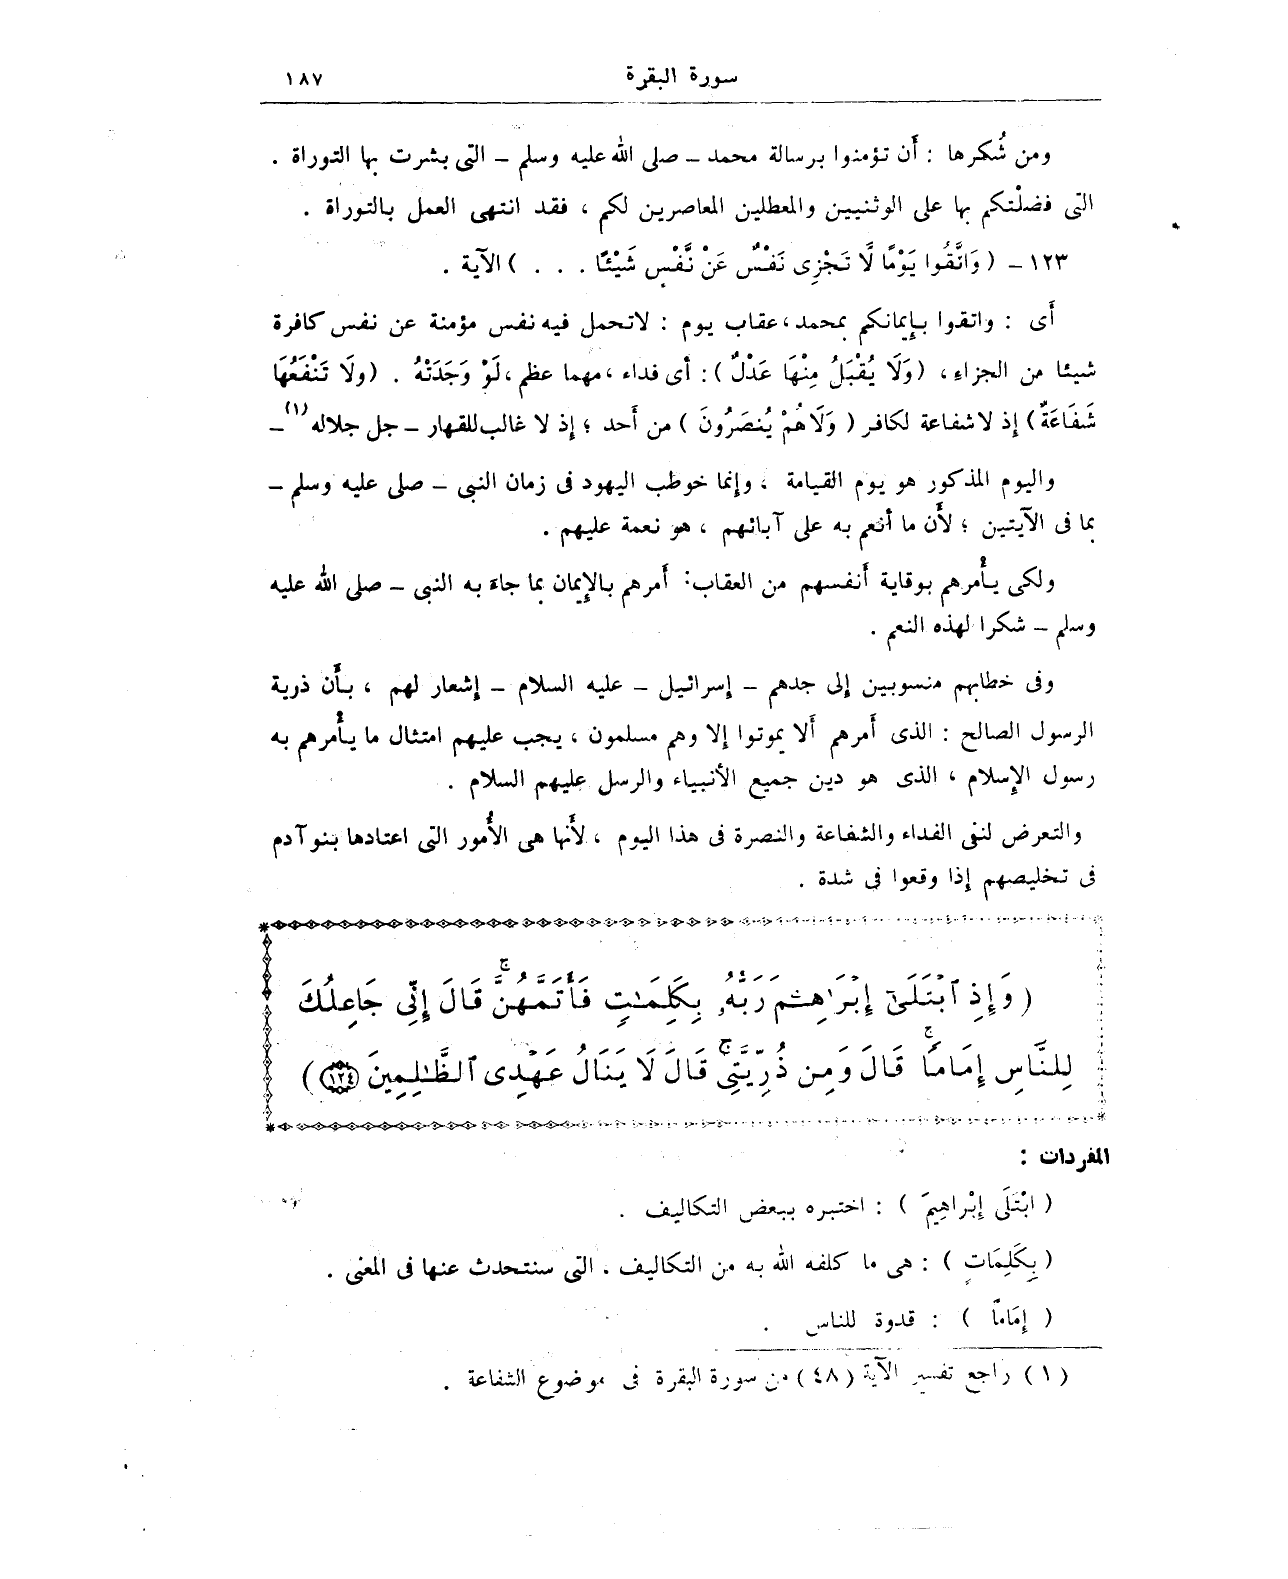 سورة البقرة ١٨٧
ومن شُكرها : أَن تؤمنوا برسالة محمد ـ صلى الله عليه وسلم ـ التى بشرت بها التوراة .
التى فضلْتكم بها على الوثنيين والمعطلين المعاصرين لكم ، فقد انتهى العمل بالتوراة .
١٢٣ ـ ( وَاتَّقُوا يَوْمًا لَّا تَجْزِى نَفْسٌ عَنْ نَّفْسٍ شَيْئًا . . . ) الآية .
أَى : واتقوا بإيمانكم بمحمد ، عقاب يوم : لاتحمل فيه نفس مؤمنة عن نفس كافرة
شيئا من الجزاء ، ( وَلَا يُقْبَلُ مِنْهَا عَدْلٌ ) : أى فداء ، مهما عظم ، لَوْ وَجَدَتْهُ . ( ولَا تَنْفَعُهَا
شَفَاعَةٌ ) إذ لا شفاعة لكافر ( وَلَاهُمْ يُنصَرُونَ ) من أَحد ؛ إذ لا غالب للقهار ـ جل جلاله (١) ـ
واليوم المذكور هو يوم القيامة ، وإنما خوطب اليهود فى زمان النبى ـ صلى عليه وسلم ـ
بما فى الآيتين ؛ لأَن ما أنعم به على آبائهم ، هو نعمة عليهم .
ولكى يأْمرهم بوقاية أَنفسهم من العقاب : أَمرهم بالإِيمان بما جاءَ به النبى ـ صلى الله عليه
وسلم ـ شكرا لهذه النعم .
وفى خطابهم منسوبين إلى جدهم ـ إسرائيل ـ عليه السلام ـ إشعار لهم ، بأَن ذرية
الرسول الصالح : الذى أَمرهم أَلا يموتوا إلا وهم مسلمون ، يجب عليهم امتثال ما يأْمرهم به
رسول الإِسلام ، الذى هو دين جميع الأنبياء والرسل عليهم السلام .
والتعرض لنفى الفداء والشفاعة والنصرة فى هذا اليوم ، لأَنها هى الأُمور التى اعتادها بنو آدم
فى تخليصهم إذا وقعوا فى شدة .
( وَإِذِ ٱبْتَلَىٰٓ إِبْرَٰهِـۧمَ رَبُّهُۥ بِكَلِمَـٰتٍ فَأَتَمَّهُنَّ ۖ قَالَ إِنِّى جَاعِلُكَ
لِلنَّاسِ إِمَامًا ۖ قَالَ وَمِن ذُرِّيَّتِى ۖ قَالَ لَا يَنَالُ عَهْدِى ٱلظَّـٰلِمِينَ ١٢٤ )
المفردات :
( ابْتَلَى إِبْراهِيمَ ) : اختبره ببعض التكاليف .
( بِكَلِمَاتٍ ) : هى ما كلفه الله به من التكاليف . التى سنتحدث عنها فى المعنى .
( إِمَامًا ) : قدوة للناس .
( ١ ) راجع تفسير الآية ( ٤٨ ) من سورة البقرة فى موضوع الشفاعة .